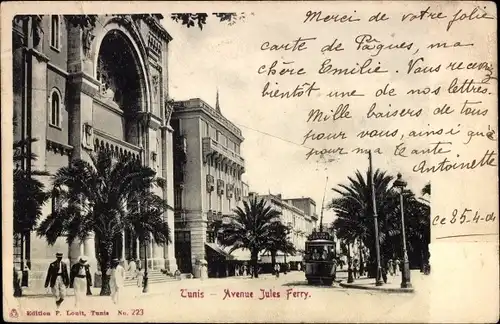 Merci de votre jolie
carte de Pâques, ma
chère Emilie. Vous recevez
bientôt une de nos lettres.
Mille baisers de tous
pour vous, ainsi que
pour ma Tante
Antoinette
ce 25-4-04
Tunis - Avenue Jules Ferry.
Edition P. Louit, Tunis No. 223